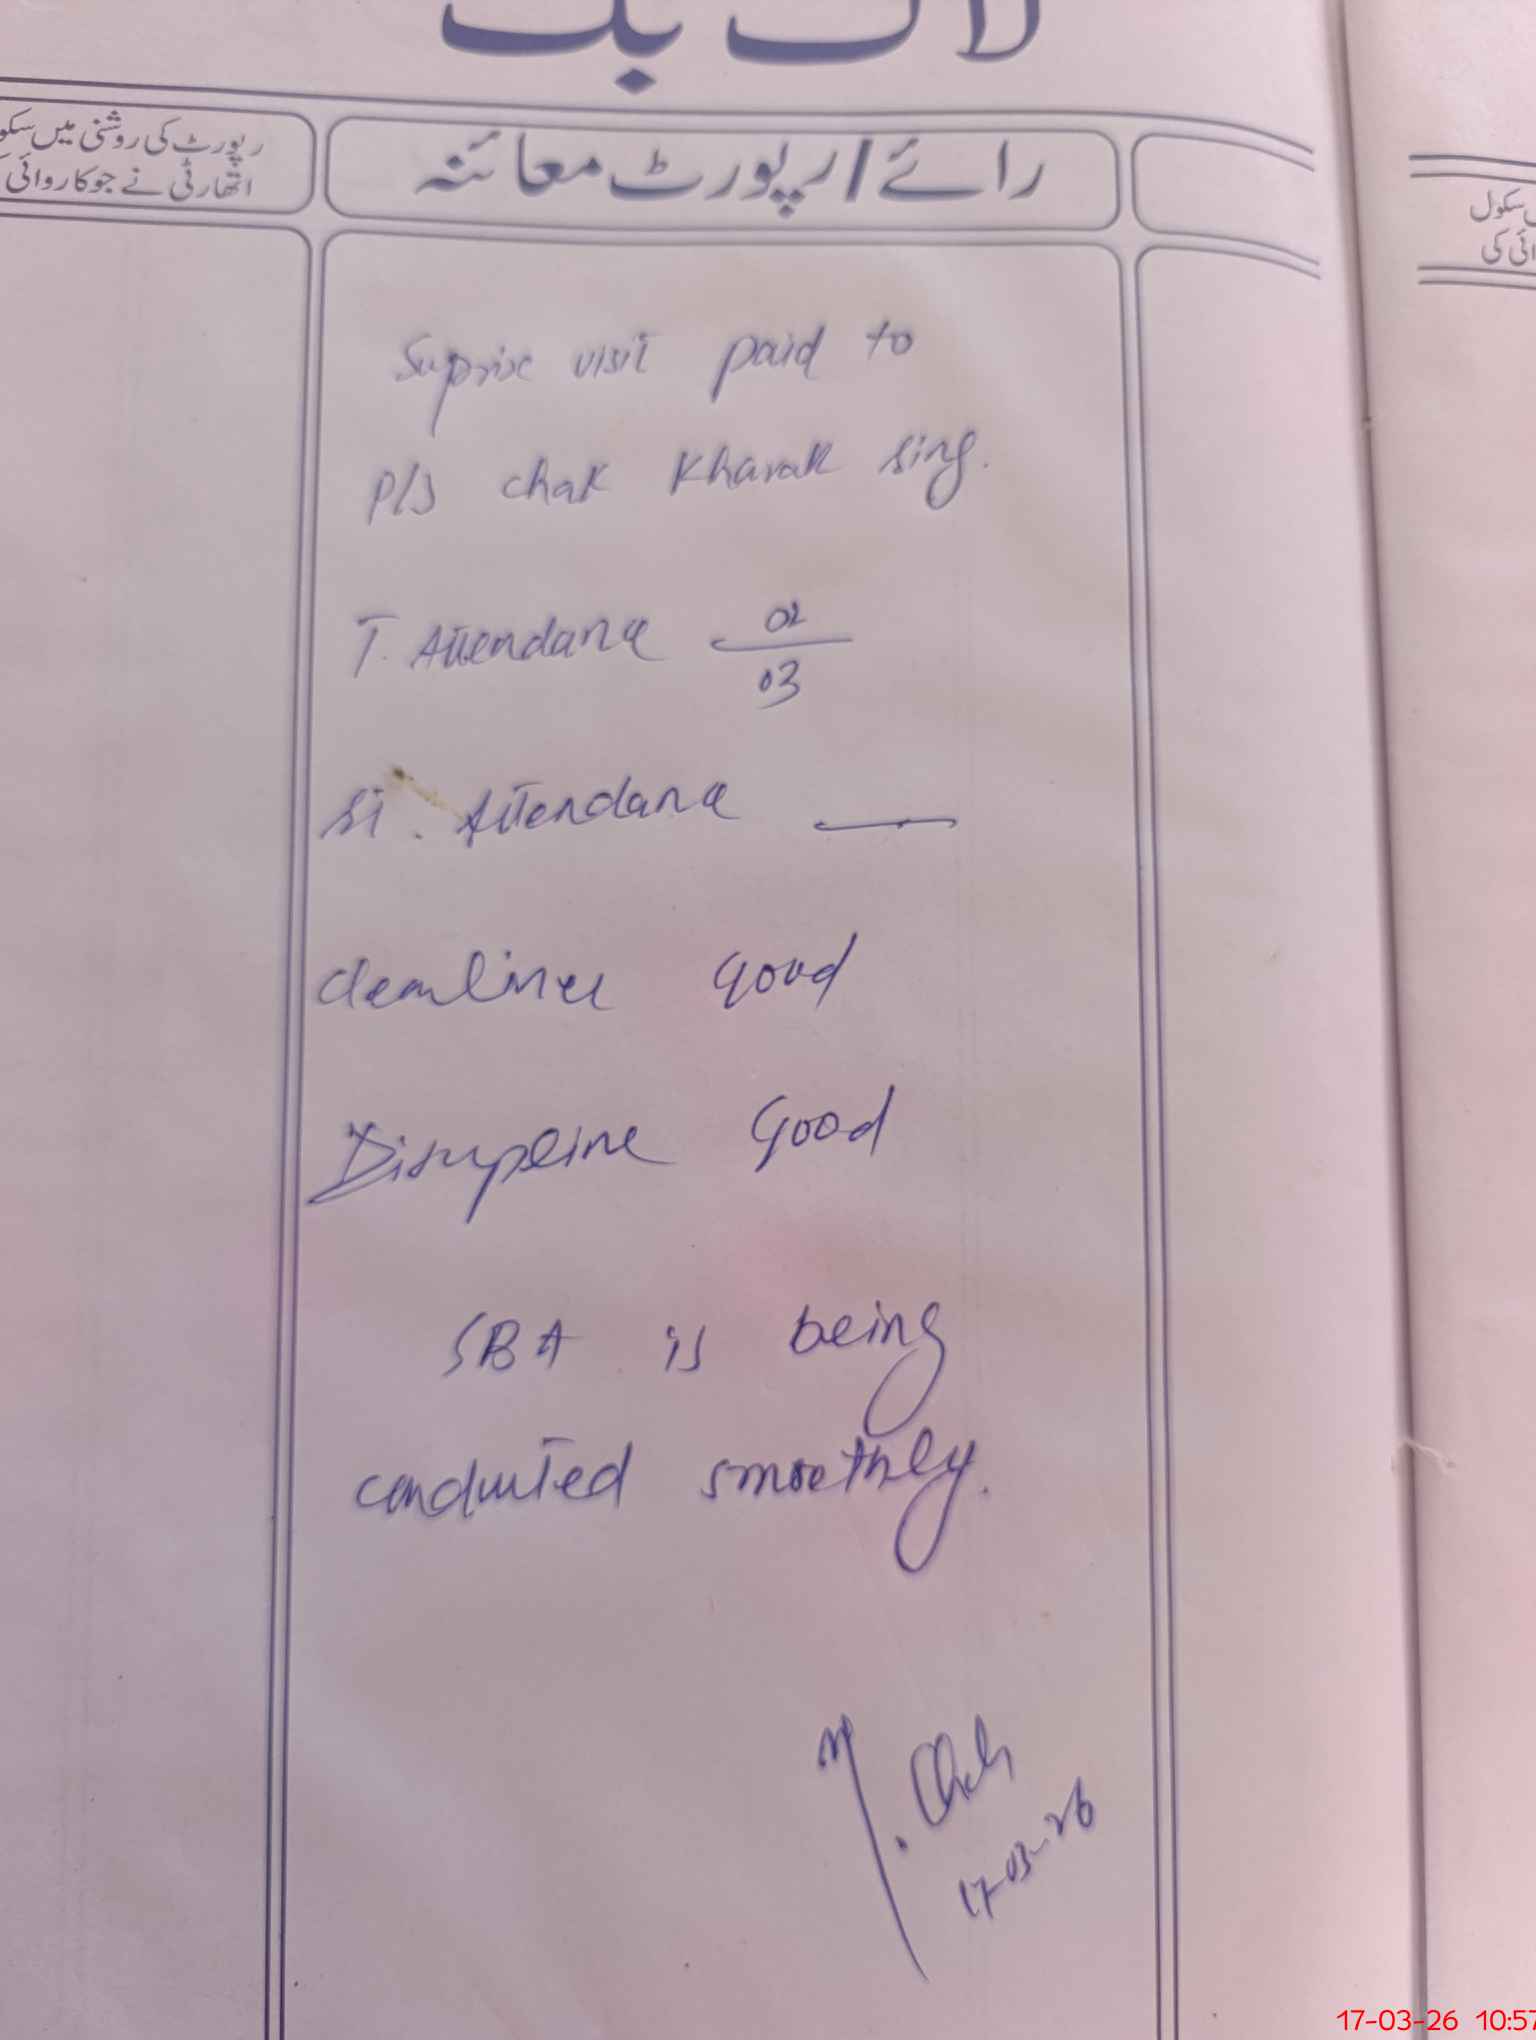 لاگ بک
رائے/رپورٹ معائنہ
رپورٹ کی روشنی میں سکو
اتھارٹی نے جو کاروائی
سکول
ائی کی
Suprise visit paid to
P/S chak Kharak sing.
T. Attendance 02
03
St. Attendance —
cleanliness Good
Discipline Good
SBA is being
conducted smoothly.
17-03-26
17-03-26 10:57